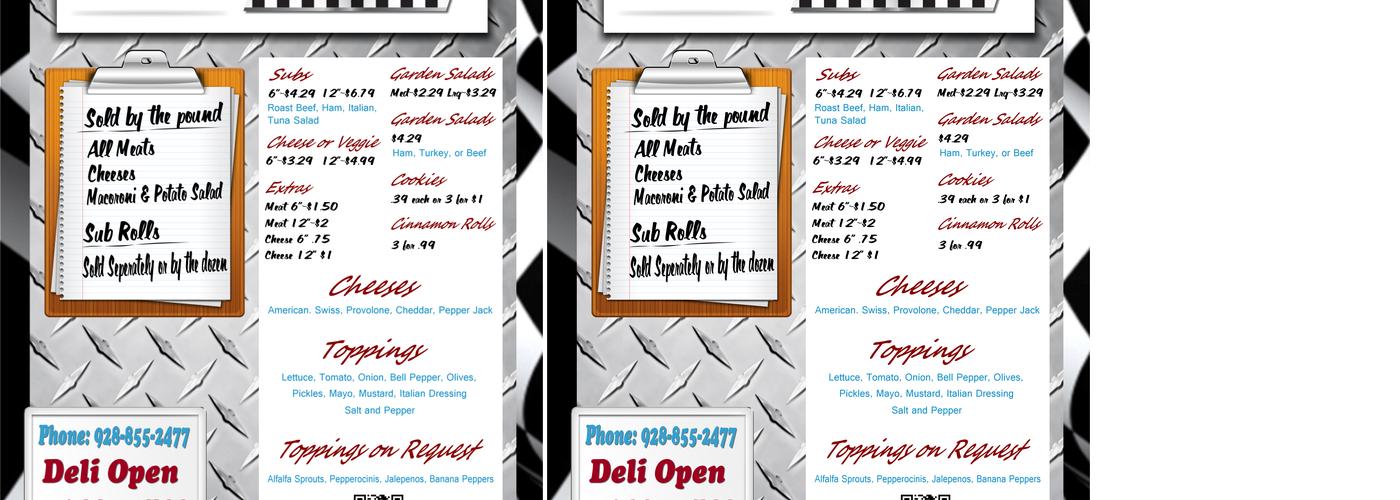 Sold by the pound
All Meats
Cheeses
Macoroni & Potato Salad
Sub Rolls
Sold Seperately or by the dozen
Phone: 928-855-2477
Deli Open
Subs
6"-$4.29 12"-$6.79
Roast Beef, Ham, Italian,
Tuna Salad
Cheese or Veggie
6"-$3.29 12"-$4.99
Extras
Meat 6"-$1.50
Meat 12"-$2
Cheese 6" .75
Cheese 12" $1
Garden Salads
Med-$2.29 Lrg-$3.29
Garden Salads
$4.29
Ham, Turkey, or Beef
Cookies
.39 each or 3 for $1
Cinnamon Rolls
3 for .99
Cheeses
American. Swiss, Provolone, Cheddar, Pepper Jack
Toppings
Lettuce, Tomato, Onion, Bell Pepper, Olives,
Pickles, Mayo, Mustard, Italian Dressing
Salt and Pepper
Toppings on Request
Alfalfa Sprouts, Pepperocinis, Jalepenos, Banana Peppers
Sold by the pound
All Meats
Cheeses
Macoroni & Potato Salad
Sub Rolls
Sold Seperately or by the dozen
Phone: 928-855-2477
Deli Open
Subs
6"-$4.29 12"-$6.79
Roast Beef, Ham, Italian,
Tuna Salad
Cheese or Veggie
6"-$3.29 12"-$4.99
Extras
Meat 6"-$1.50
Meat 12"-$2
Cheese 6" .75
Cheese 12" $1
Garden Salads
Med-$2.29 Lrg-$3.29
Garden Salads
$4.29
Ham, Turkey, or Beef
Cookies
.39 each or 3 for $1
Cinnamon Rolls
3 for .99
Cheeses
American. Swiss, Provolone, Cheddar, Pepper Jack
Toppings
Lettuce, Tomato, Onion, Bell Pepper, Olives,
Pickles, Mayo, Mustard, Italian Dressing
Salt and Pepper
Toppings on Request
Alfalfa Sprouts, Pepperocinis, Jalepenos, Banana Peppers